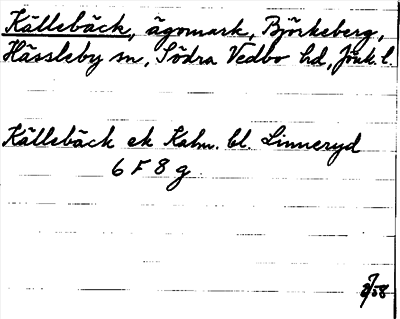 Källebäck, ägomark, Björkeberg,
Hässleby sn, Södra Vedbo hd, Jönk. l.
Källebäck ek Kartn. bl. Linneryd
6 F 8 g